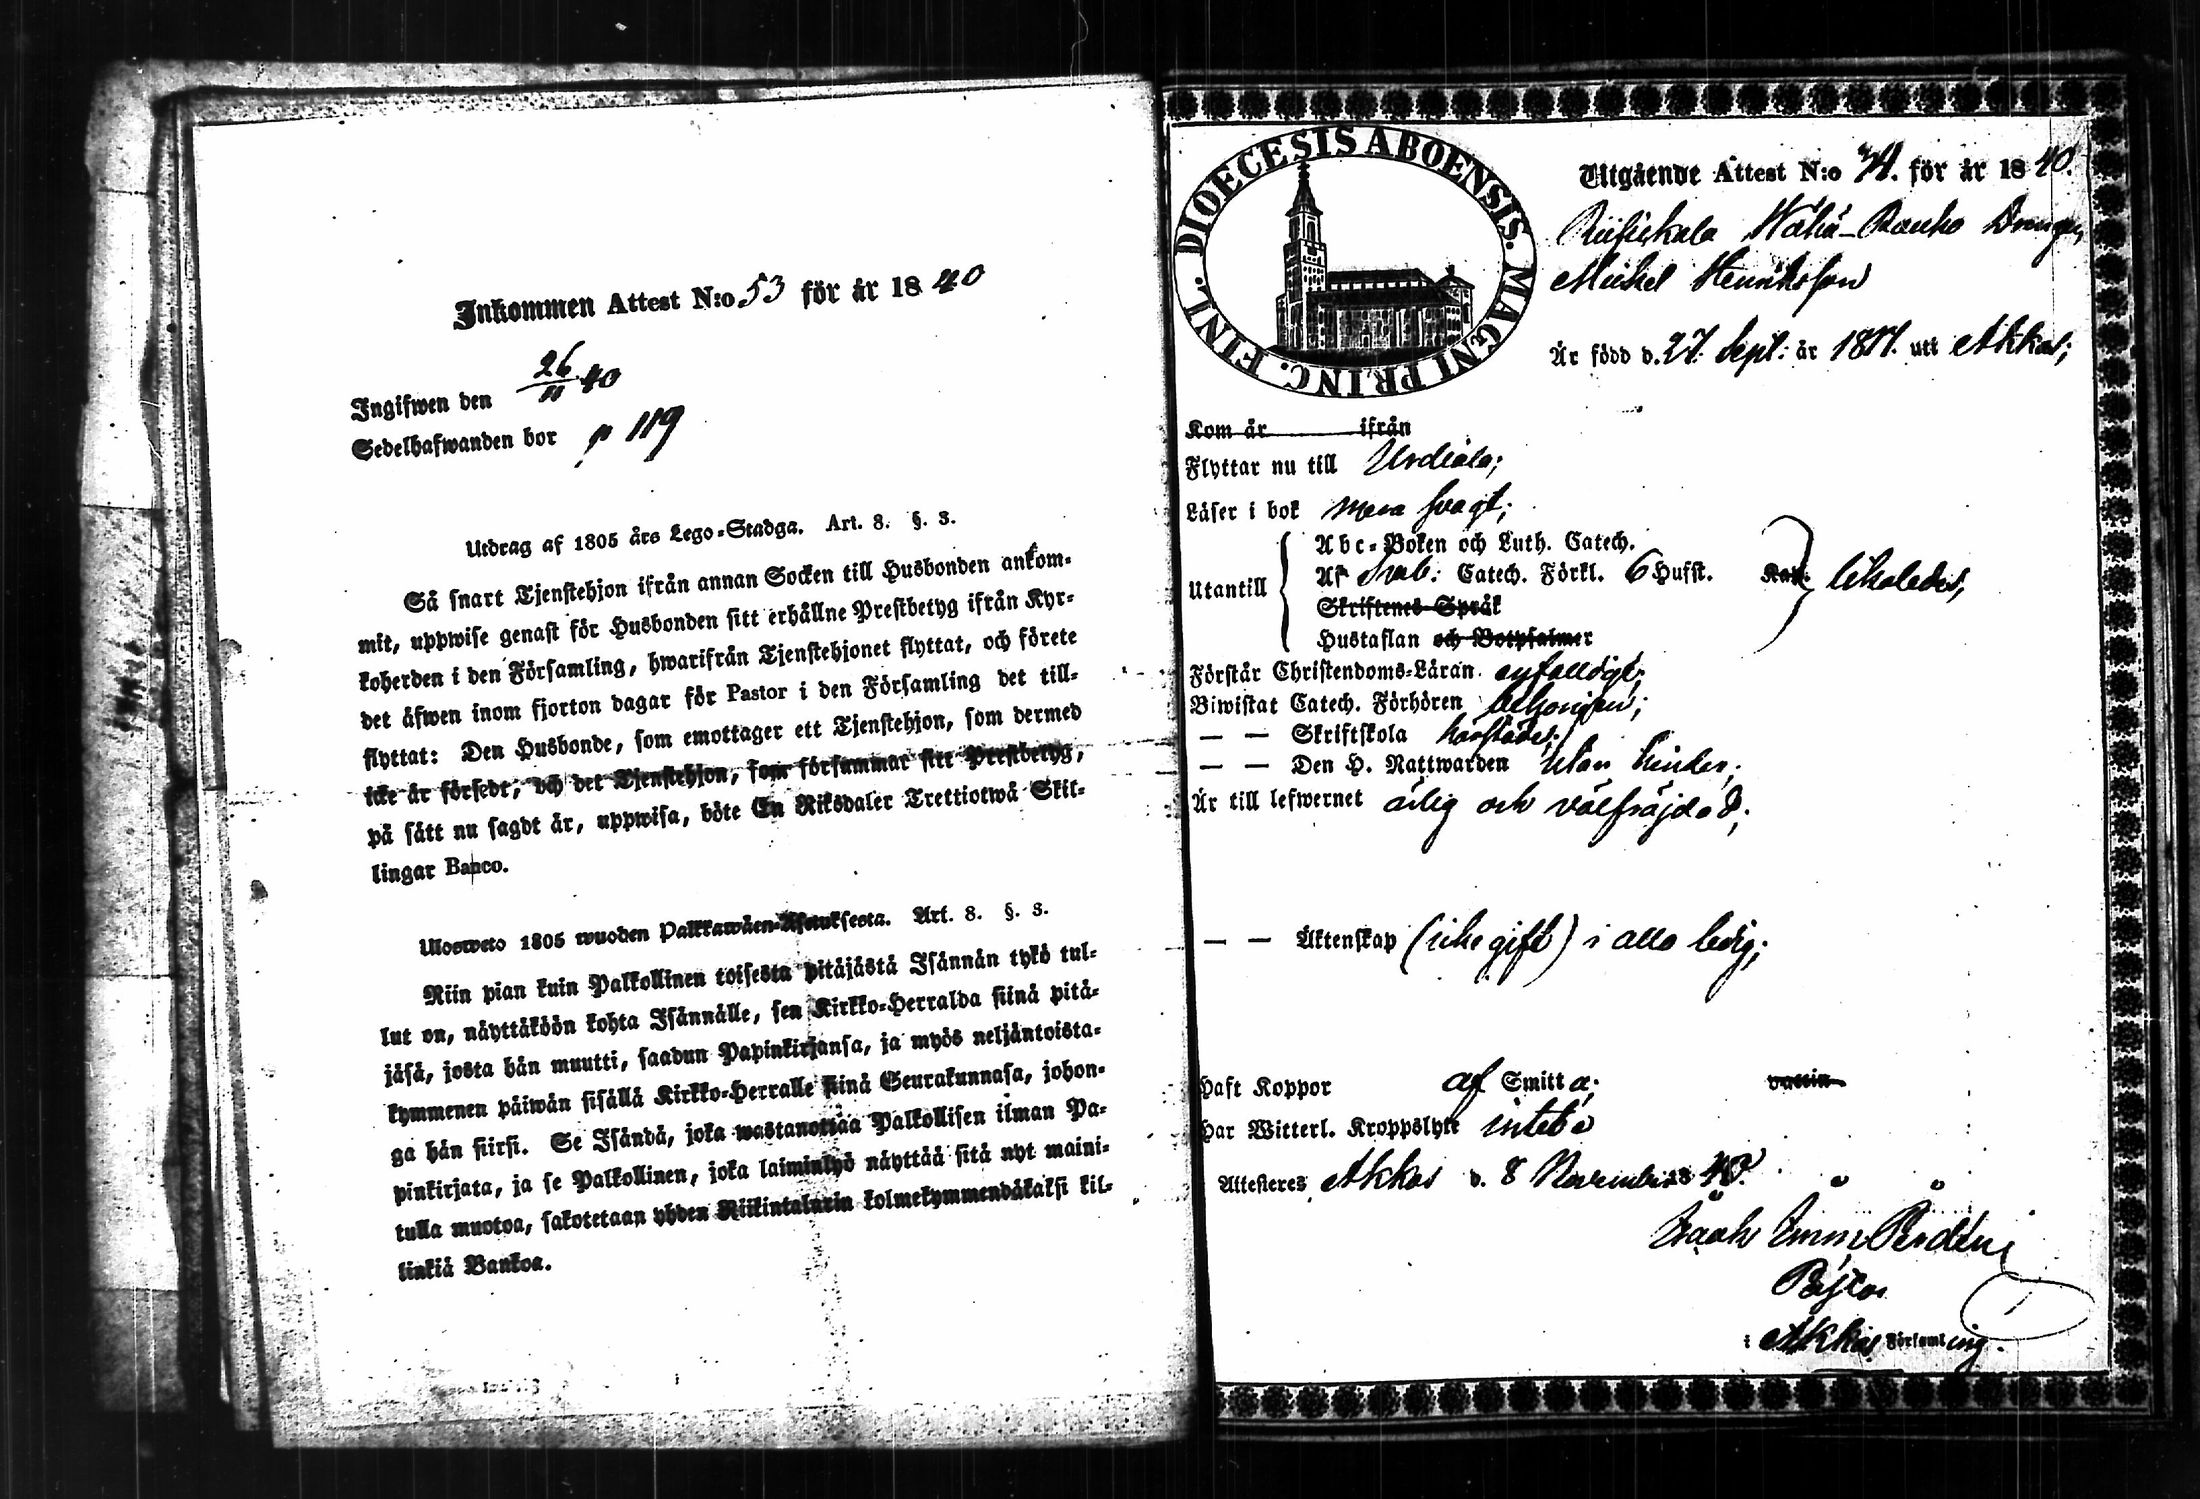 Inkommen Attest N:o 53 för år 1840
Ingifwen den 26/11 40
Sedelhafwanden bor p 119
Utdrag af 1805 års Lego-Stadga. Art. 8. §. 3.
Så snart Tjenstehjon ifrån annan Socken till Husbonden ankom-
mit, uppwise genast för Husbonden sitt erhållne Prestbetyg ifrån Kyr-
koherden i den Församling, hwarifrån Tjenstehjonet flyttat, och förete
det äfwen inom fjorton dagar för Pastor i den Församling det till-
flyttat: Den Husbonde, som emottager ett Tjenstehjon, som dermed
icke är försedt, och det Tjenstehjon, som försummar sitt Prestbetyg,
på sätt nu sagdt är, uppwisa, böte En Riksdaler Trettiotwå Skil-
lingar Banco.
Ulosweto 1805 wuoden Palkkawäen-Asetuksesta. Art. 8. §. 3.
Niin pian kuin Palkollinen toisesta pitäjästä Isännän tykö tul-
lut on, näyttäköön kohta Isännälle, sen Kirkko-Herralda siinä pitä-
jäsä, josta hän muutti, saadun Papinkirjansa, ja myös neljäntoista-
kymmenen päiwän sisällä Kirkko-Herralle siinä Seurakunnasa, johon-
ga hän siirsi. Se Isändä, joka wastanottaa Palkollisen ilman Pa-
pinkirjata, ja se Palkollinen, joka laiminlyö näyttää sitä nyt maini-
tulla muotoa, sakotetaan yhden Riikintalarin kolmekymmendäkaksi kil-
linkiä Bankoa.
DIOECESIS ABOENSIS. MAGNI PRINC. FINL.
Utgående Attest N:o 74. för år 1840.
Wähä-Rauho Drengen
Michel Henriksson
Är född d. 27. Sept: år 1817. uti Akkas;
Kom år ifrån
Flyttar nu till Urdiala;
Läser i bok mera svagt;
Utantill
Abc-Boken och Luth. Catech.
Af Sveb: Catech. Förkl. 6 Hufst. Kap. likaledes,
Skriftenes Språk
Hustaflan och Botpsalmer
Förstår Christendoms-Läran enfalldigt;
Biwistat Catech. Förhören behörigen;
— — Skriftskola härstädes;
— — Den H. Nattwarden utan hinder;
Är till lefwernet ärlig och välfräjdad;
— — Äktenskap (icke gift) i allo ledig;
Haft Koppor af Smitta; vaccin
Har Witterl. Kroppslyte intet
Attesteras Akkas d. 8 November 1840.
Isaak Imm
Pastor
i Akkas Församling.